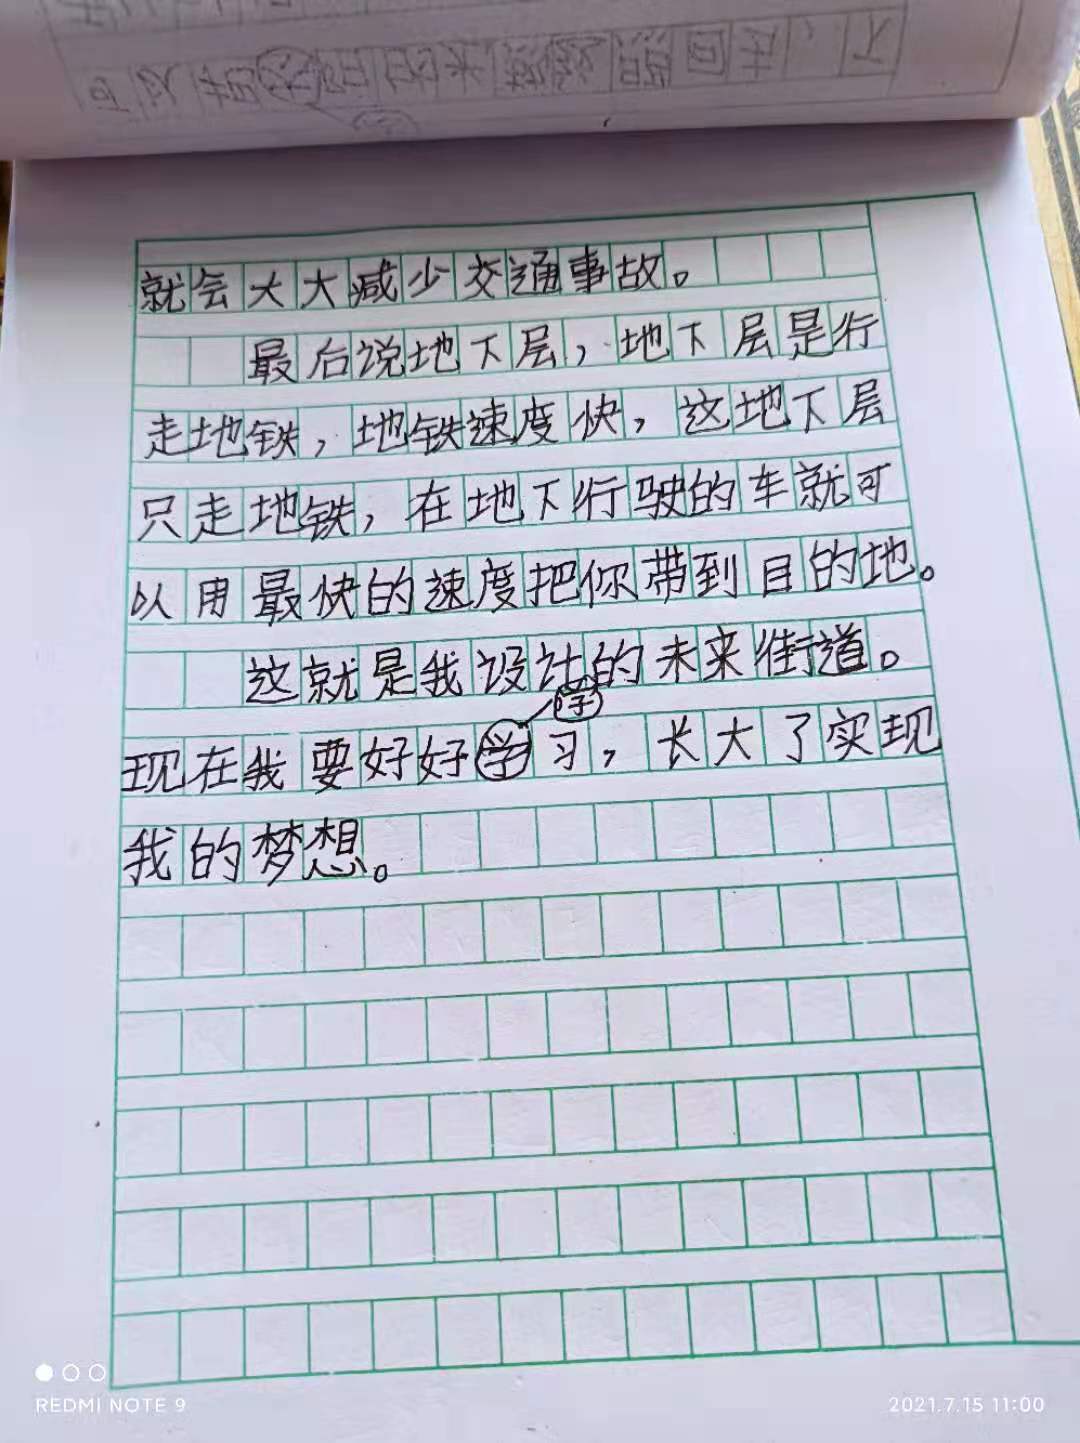 就会大大减少交通事故。
最后说地下层，地下层是行
走地铁，地铁速度快，这地下层
只走地铁，在地下行驶的车就可
以用最快的速度把你带到目的地。
这就是我设计的未来街道。
学
现在我要好好学习，长大了实现
我的梦想。
REDMI NOTE 9
2021.7.15 11:00